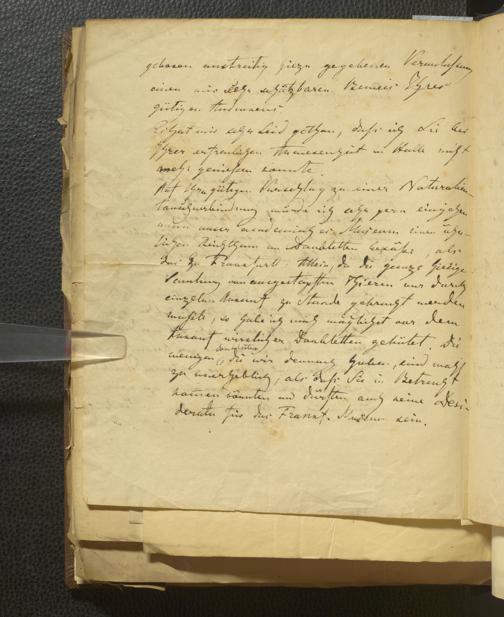 gebenen unstreitig hiezu gegebenen Veranlassung
einen mir sehr schätzbaren Beweis Ihres
gütigen Andenkens
Es hat mir sehr Leid gethan, daß ich Sie bei
Ihrer erfreulichen Anwesenheit in Halle nicht
mehr genießen konnte.
Auf Ihren gütigen Vorschlag zu einer Naturalien-
tauschverbindung würde ich sehr gern eingehen
wenn unser academisches Museum einen ähn-
lichen Reichthum an Doubletten besäße, als
das zu Frankfurt. Allein, da die ganze hiesige
Sammlung von ausgestopften Thieren nur durch
einzelne zu Stande gebracht werden
mußte, so habe ich mich möglichst vor dem
Ankauf unnöthiger Doubletten gehütet. Die
wenigen Doubletten, die wir dennoch haben, sind wohl
zu unerheblich, als daß Sie in Betracht
kommen könnten und dürften auch keine Desi-
derata für das Frankf. Museum sein.